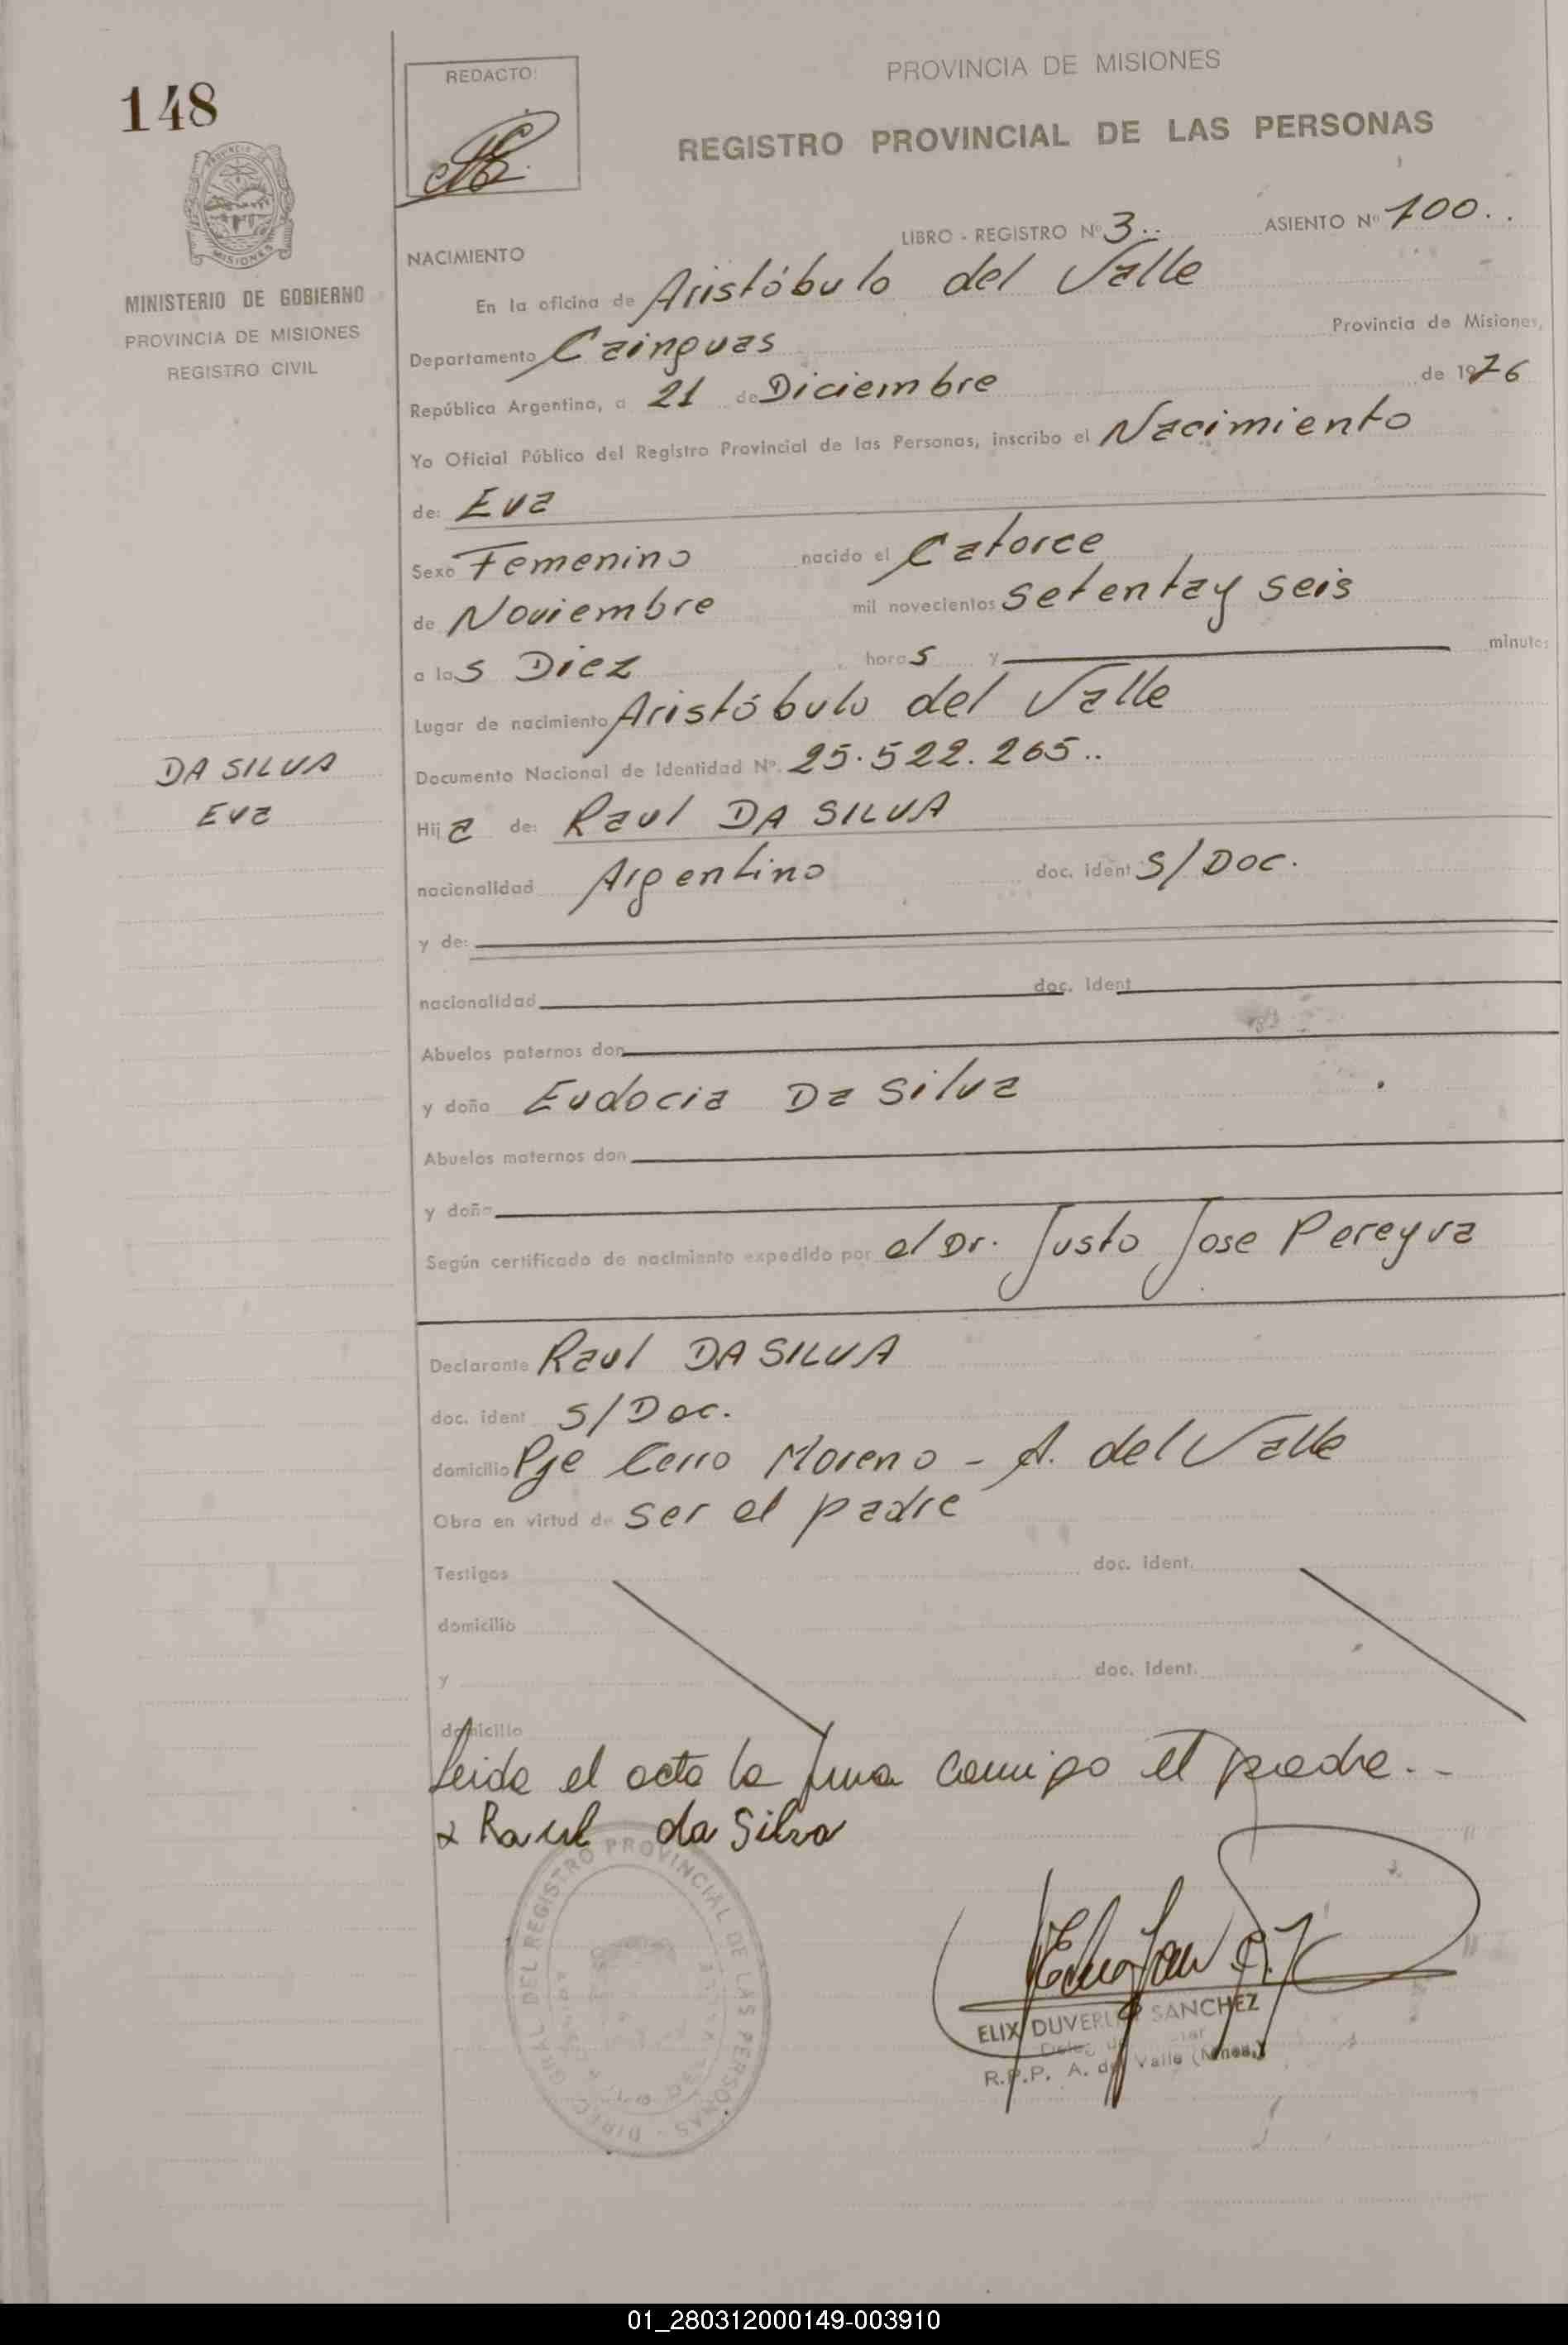 148
REDACTO:
PROVINCIA DE MISIONES
REGISTRO PROVINCIAL DE LAS PERSONAS
PROVINCIA DE
MISIONES
MINISTERIO DE GOBIERNO
PROVINCIA DE MISIONES
REGISTRO CIVIL
LIBRO - REGISTRO Nº 3.. ASIENTO Nº 100..
NACIMIENTO
En la oficina de Aristóbulo del Valle
Departamento Cainguas Provincia de Misiones,
República Argentina, a 21 de Diciembre de 1976
Yo Oficial Público del Registro Provincial de las Personas, inscribo el Nacimiento
de: Eva
Sexo Femenino nacido el Catorce
de Noviembre mil novecientos setenta y seis
a las Diez horas y minutos
Lugar de nacimiento Aristóbulo del Valle
Documento Nacional de Identidad Nº. 25.522.265..
DA SILVA
Eva
Hija de: Raul DA SILVA
nacionalidad Argentino doc. ident S/Doc.
y de:
nacionalidad doc. ident
Abuelos paternos don
y doña Eudocia Da Silva
Abuelos maternos don
y doña
Según certificado de nacimiento expedido por el Dr. Justo Jose Pereyra
Declarante Raul DA SILVA
doc. ident S/Doc.
domicilio Pje Cerro Moreno - A. del Valle
Obra en virtud de ser el padre
Testigos doc. ident.
domicilio
y doc. ident.
domicilio
Leida el acta la firma conmigo el padre.-
x Raul da Silva
DIREC. GRAL. DEL REGISTRO PROVINCIAL DE LAS PERSONAS
SANCHEZ
R.P.P. A. del Valle (Mnes.)
01_280312000149-003910